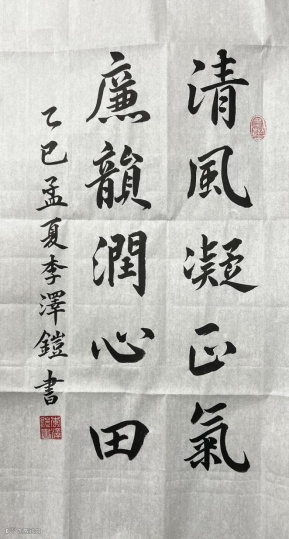 清風凝正氣
廉韻潤心田
乙巳孟夏李澤鎧書